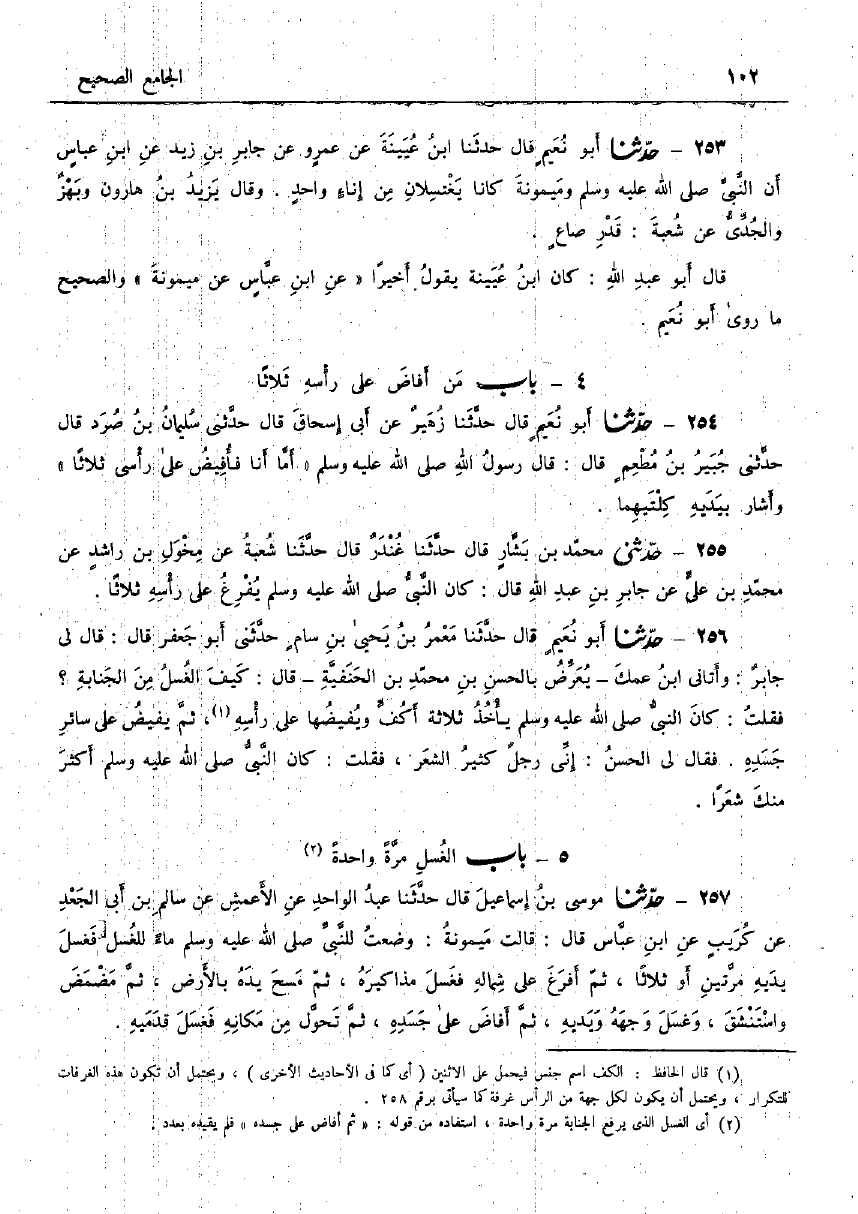 ١٠٢ الجامع الصحيح
٢٥٣ – حدّثنا أبو نُعَيمٍ قال حدثَنا ابنُ عُيَينَةَ عن عمرٍو عن جابرِ بنِ زيد عنِ ابنِ عباسٍ
أن النَّبيَّ صلى الله عليه وسلم ومَيمونةَ كانا يَغْتسِلانِ مِن إناءٍ واحدٍ . وقال يَزيدُ بنُ هارون وبَهْزٌ
والجُدِّىُّ عن شُعبةَ : قَدْرِ صاعٍ .
قال أبو عبدِ اللهِ : كان ابنُ عُيَينة يقولُ أخيرًا « عنِ ابنِ عبَّاسٍ عن ميمونةَ » والصحيح
ما روىٰ أبو نُعَيم .
٤ – باب مَن أفاضَ على رأسهِ ثَلاثًا
٢٥٤ – حدّثنا أبو نُعَيمٍ قال حدَّثَنا زُهَيرٌ عن أبى إسحاقَ قال حدَّثنى سُليمانُ بنُ صُرَد قال
حدَّثنى جُبَيرُ بنُ مُطْعِمٍ قال : قال رسولُ اللهِ صلى الله عليه وسلم « أمَّا أنا فأُفِيضُ علىٰ رأسى ثلاثًا »
وأشار بيَدَيهِ كِلْتَيهِما .
٢٥٥ – حدّثنى محمّد بن بَشَّارٍ قال حدَّثَنا غُنْدَرٌ قال حدَّثَنا شُعبةُ عن مِخْوَلِ بن راشدٍ عن
محمّدِ بن علىٍّ عن جابرِ بنِ عبدِ اللهِ قال : كان النَّبىُّ صلى الله عليه وسلم يُفْرِغُ على رأسِهِ ثلاثًا .
٢٥٦ – حدّثنا أبو نُعَيمٍ قال حدّثنا مَعْمَرُ بنُ يَحيىٰ بنِ سامٍ حدَّثَنى أبو جَعفرٍ قال : قال لى
جابرٌ : وأتانى ابنُ عمكَ – يُعَرِّضُ بالحسنِ بنِ محمّدِ بن الحَنَفيَّةِ – قال : كَيفَ الغُسلُ مِنَ الجَنابةِ ؟
فقلتُ : كانَ النبىُّ صلى الله عليه وسلم يأْخُذُ ثلاثة أكُفٍّ ويُفيضُها على رأسِهِ (١)، ثمَّ يفيضُ على سائرِ
جَسَدِهِ . فقال لى الحسنُ : إنِّى رجلٌ كثيرُ الشعَرِ ، فقلت : كان النَّبىُّ صلى الله عليه وسلم أكثرَ
منكَ شعَرًا .
٥ – باب الغُسلِ مرَّةً واحدةً (٢)
٢٥٧ – حدّثنا موسى بنُ إسماعيلَ قال حدَّثَنا عبدُ الواحدِ عنِ الأَعمشِ عن سالمِ بن أبى الجَعْدِ
عن كُرَيبٍ عنِ ابنِ عبَّاس قال : قالت مَيمونةُ : وضعتُ للنَّبىِّ صلى الله عليه وسلم ماءً للغُسلِ فَغسلَ
يدَيهِ مرَّتينِ أو ثلاثًا ، ثمّ أفرَغَ على شِمالهِ فغسلَ مذاكيرَهُ ، ثمّ مَسحَ يدَهُ بالأرضِ ، ثمَّ مَضْمَضَ
واسْتَنْشَقَ ، وغسلَ وَجههُ ويَديهِ ، ثمَّ أفاضَ علىٰ جَسَدِهِ ، ثمَّ تَحوَّل مِن مَكانِهِ فَغسَلَ قدَميهِ .
(١) قال الحافظ : الكف اسم جنس فيحمل على الاثنين ( أى كما فى الأحاديث الأخرى ) ، ويحتمل أن تكون هذه الغرفات
للتكرار ، ويحتمل أن يكون لكل جهة من الرأس غرفة كما سيأتى برقم ٢٥٨ .
(٢) أى الغسل الذى يرفع الجنابة مرة واحدة ، استفاده من قوله : « ثم أفاض على جسده » فلم يقيده بعدد .